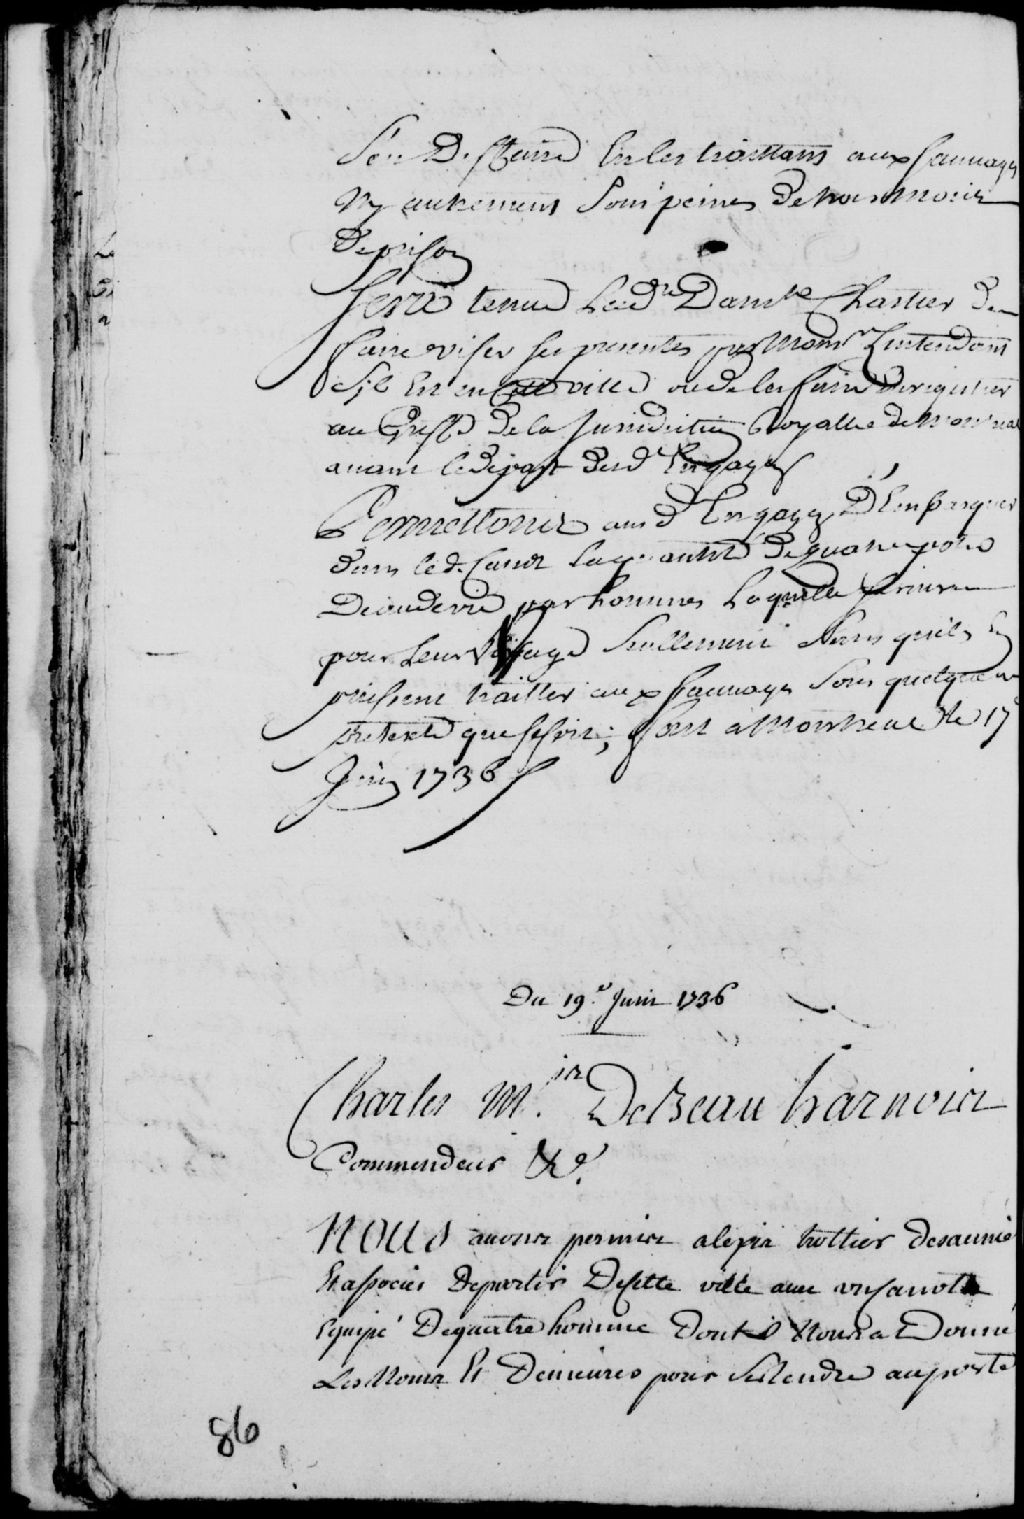 s'en Deffaire En les traittans aux sauvages
Ny autrement sous peines de trois mois
De prison
Sera tenue Lad. Dam.lle Chartier de
faire viser ses presentes par Mons.r Lintendant
s'il Est en cette ville ou de les faire Enregistrer
au Greffe de la Jurisdiction Royalle de Montreal
avant le Depart desd. Engagés
Permettons ausd. Engagés D'Embarquer
dans led. Canot la quantité de quatre pots
Deaudevie par hommes Laquelle servira
pour Leur Voyage seullement sans quils En
puissent traitter aux sauvages sous quelque
pretexte que se soit; fait a Montreal le 17
Juin 1736
Du 19.e Juin 1736
Charles M.is De Beauharnois
Commendeur &c.
NOUS avons permis alexis trottier desaunié
Et associés De partir De sette ville avec un canotte
Equipé De quatre homme Dont il Nous a Donné
Les Noms Et Demeures pour se Rendre au poste
86